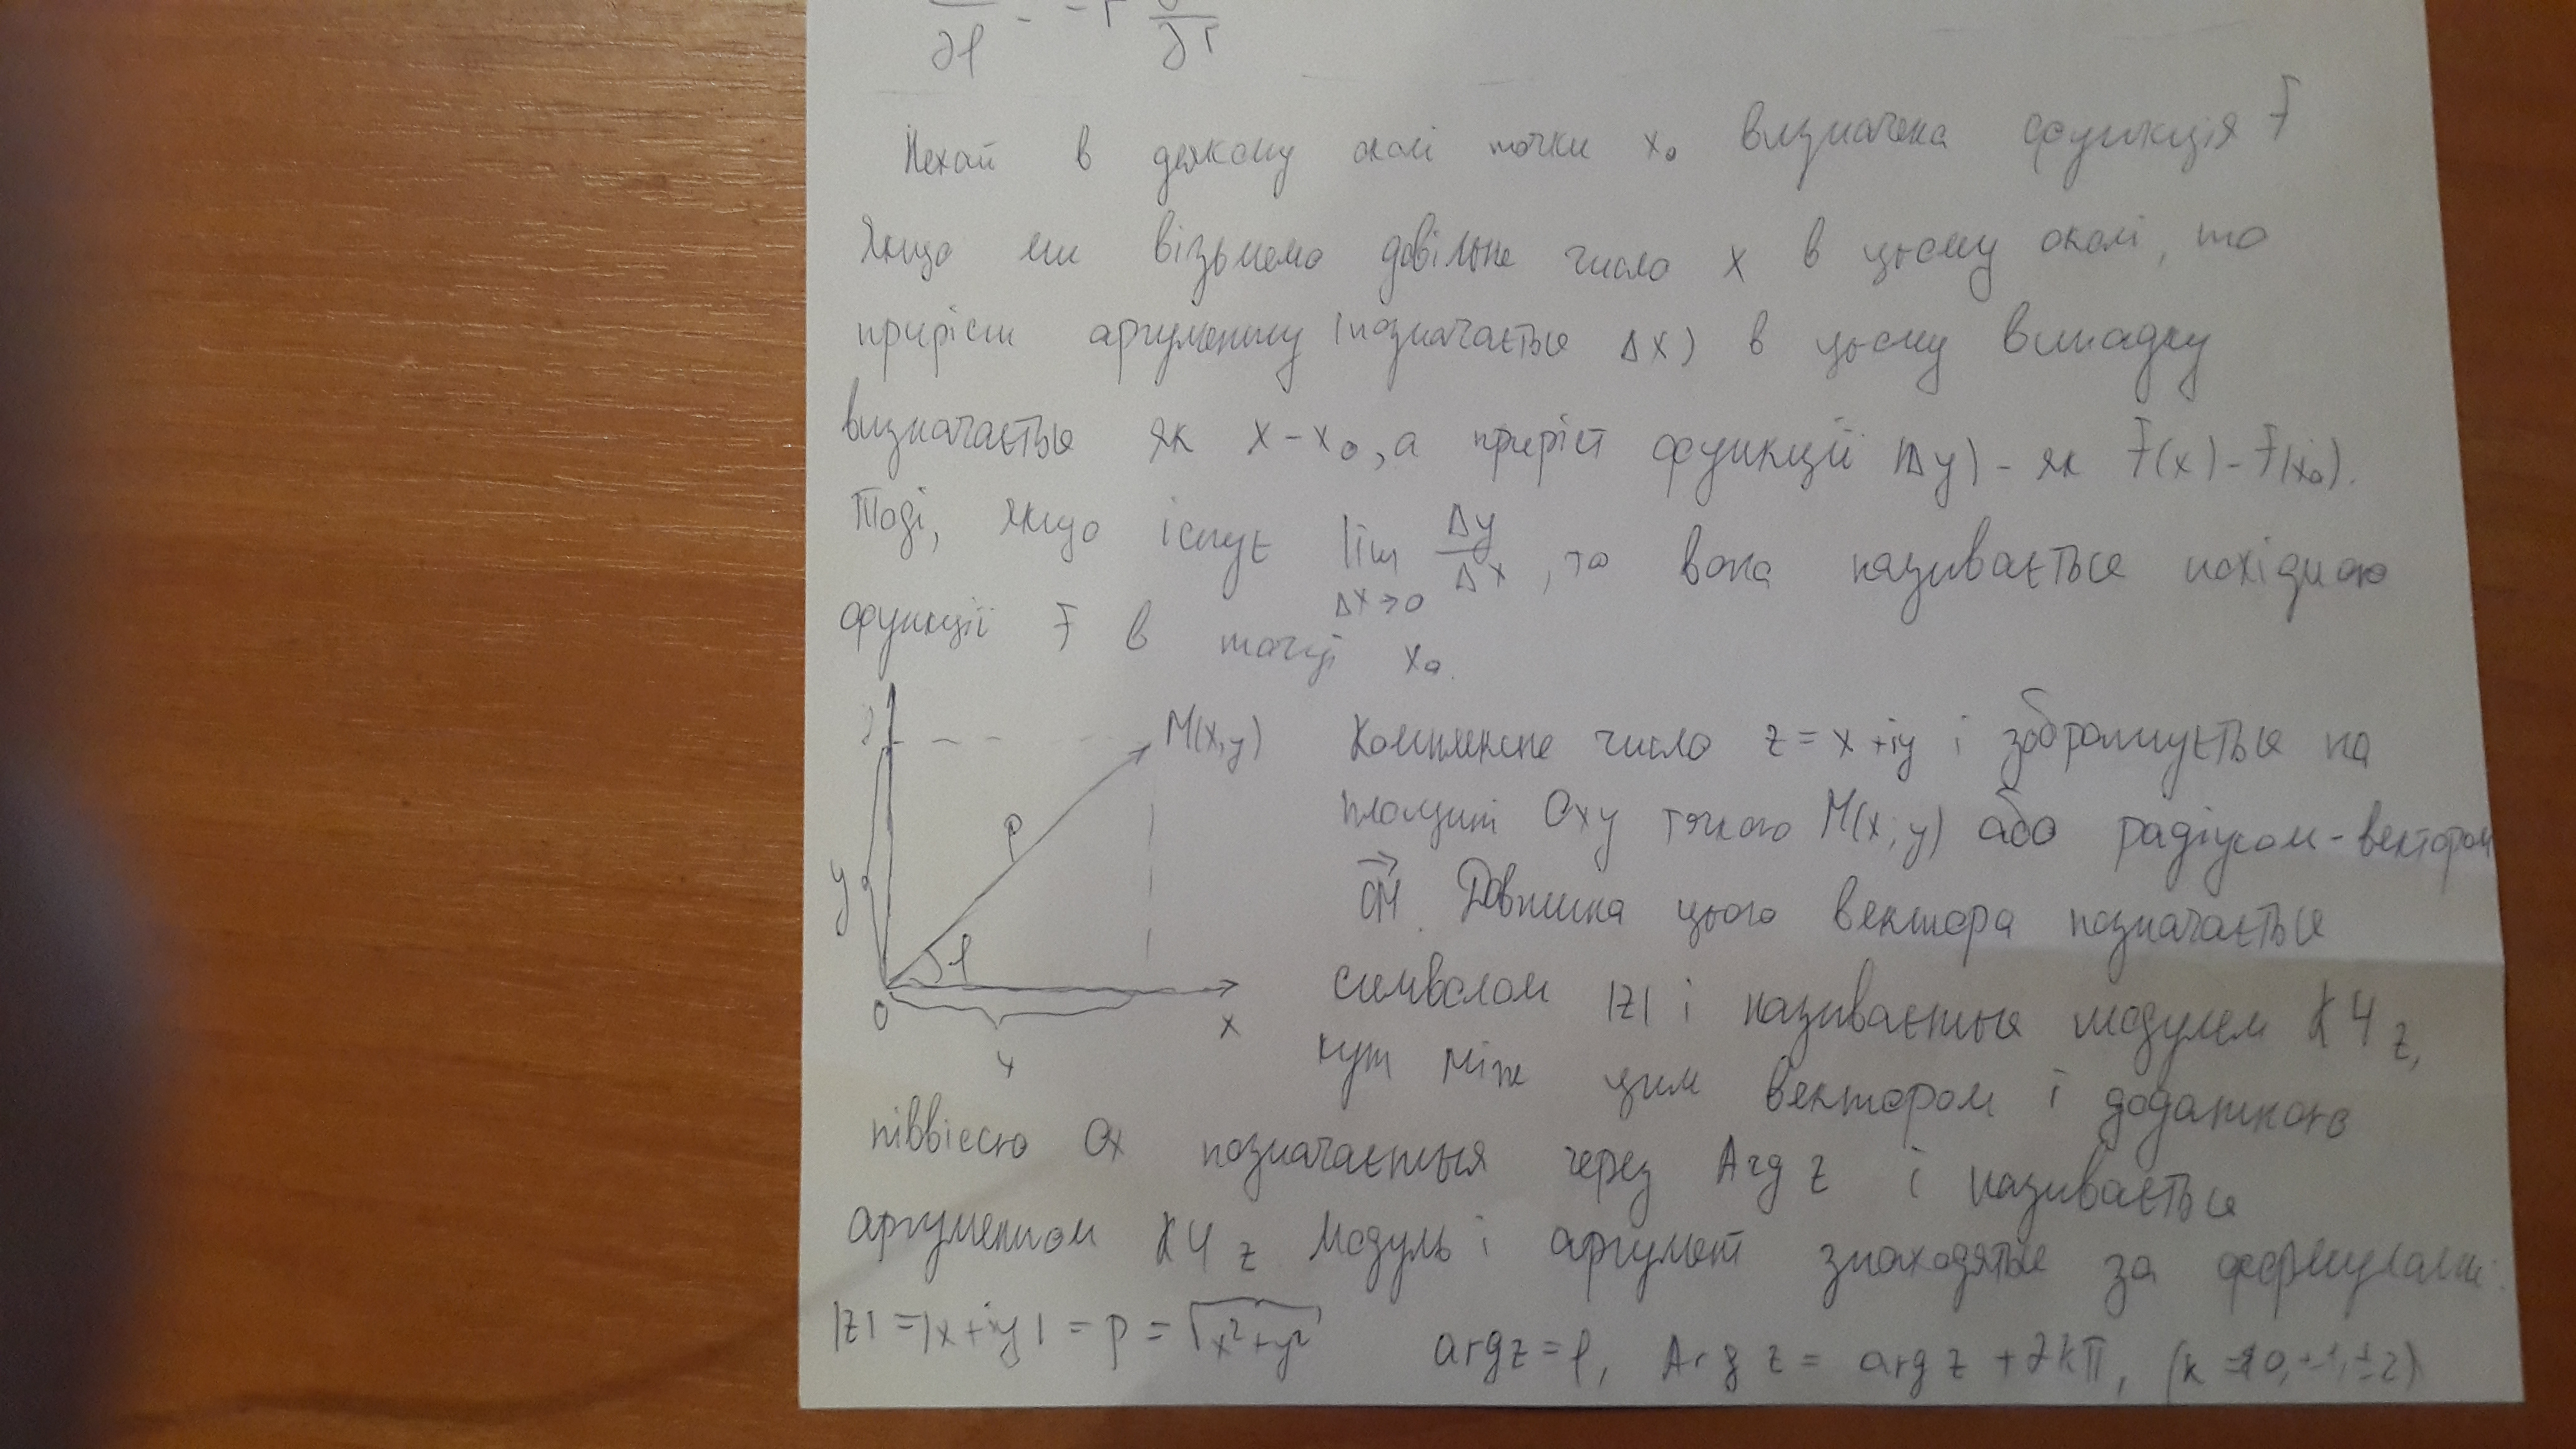 ∂φ - - r ∂r
Нехай в деякому околі точки x₀ визначена функція f
Якщо ми візьмемо довільне число x в цьому околі, то
приріст аргументу (позначається Δx) в цьому випадку
визначається як x-x₀, а приріст функції (Δy) - як f(x)-f(x₀).
Тоді, якщо існує lim Δy/Δx, то вона називається похідною
Δx→0
функції f в точці x₀.
M(x,y)
Комплексне число z=x+iy і зображується на
площині Oxy точкою M(x;y) або радіусом-вектором
OM. Довжина цього вектора позначається
символом |z| і називається модулем КЧ z,
кут між цим вектором і додатною
ρ
y
φ
0
x
x
піввіссю Ox позначається через Arg z і називається
аргументом КЧ z Модуль і аргумент знаходяться за формулами:
|z|=|x+iy|=ρ=√x²+y² arg z=φ, Arg z = arg z +2kπ, (k=0,±1,±2)